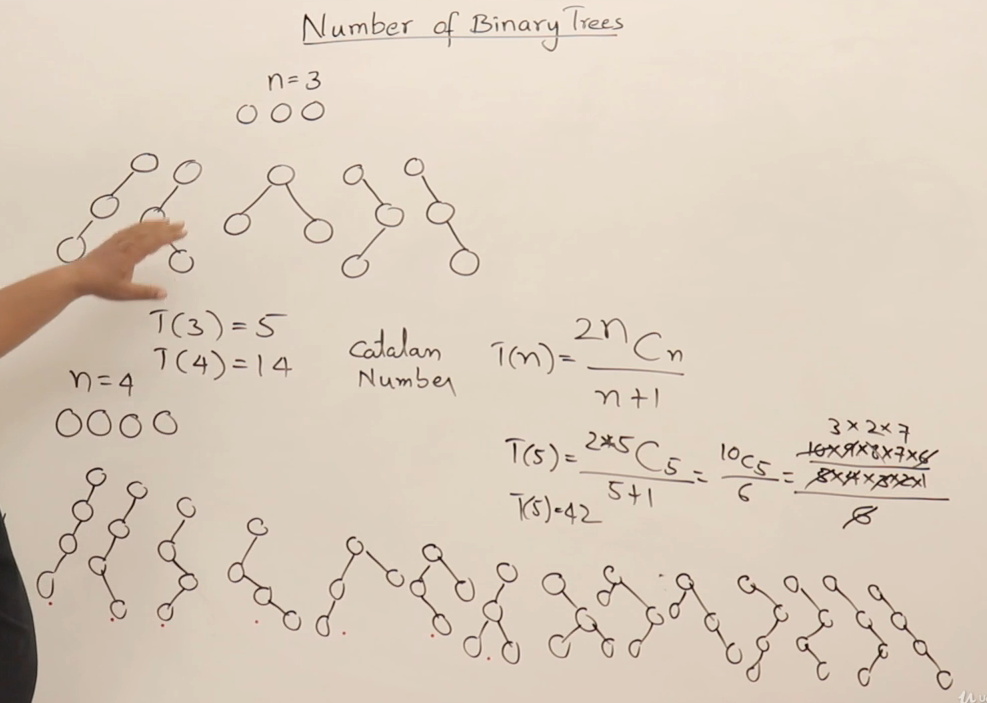 Number of Binary Trees
n=3
T(3)=5
T(4)=14
n=4
Catalan
Number
T(n)= 2nCn / n+1
T(5)= 2*5C5 / 5+1 = 10C5 / 6 = 10×9×8×7×6 / 5×4×3×2×1 / 6
3×2×7
T(5)=42